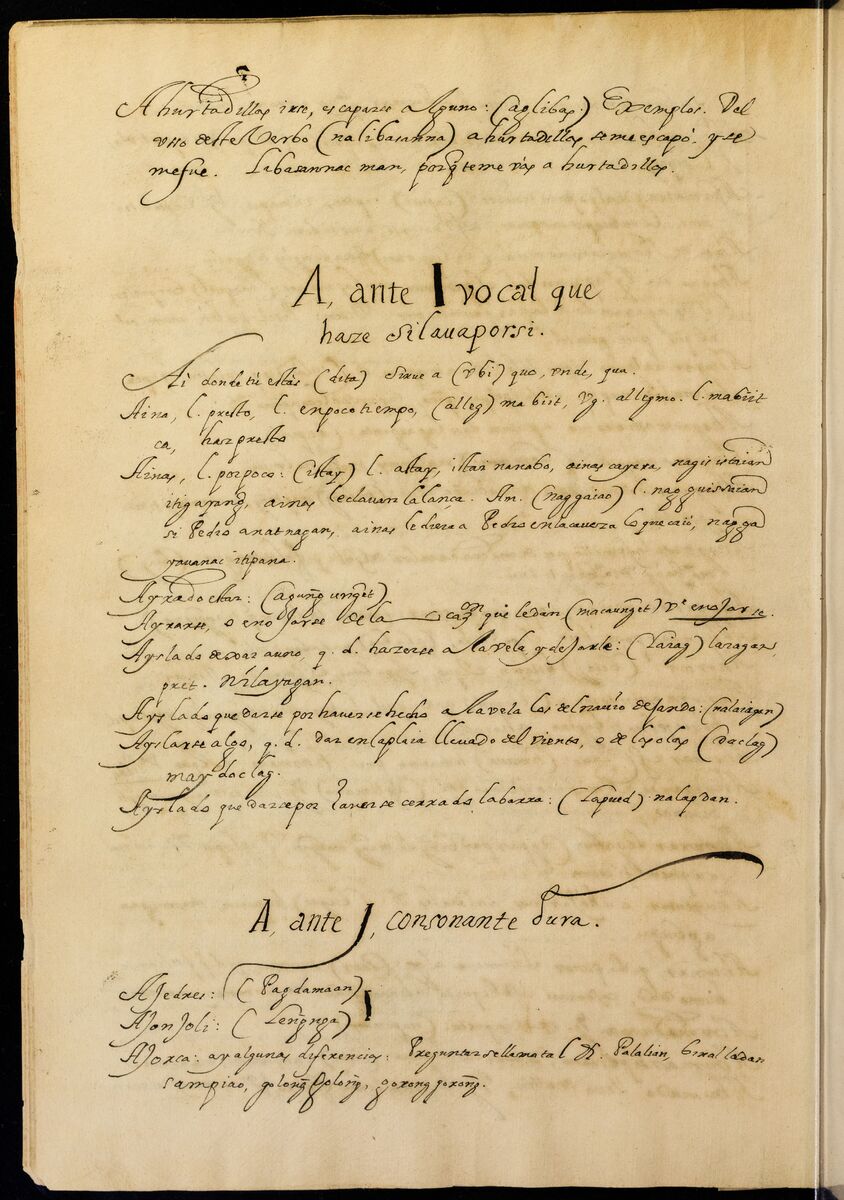 A hurtadillas irse, escaparse a Alguno: (aglibas) Exemplos. Del
vsso deste Verbo (nalibasanna) a hurtadillas se me escapó. y se
me fue. Libasannac man, porq̃ te me vás a hurtadillas.
A, ante I vocal que
haze silaua por si.
Ai donde tú estás (dita) sirue a (vbi) quo, vnde, qua.
Aina, l. presto, l. en poco tiempo, (alleg) mabiit, vg. allegmo. l. mabiit
ca, haz presto
Ainas, l. por poco: (istay) l. astay, istai nanabo, ainas cayera, nagis istaian
itigayang, ainas le clauan la lança. An. (naggaiao) l.
si Pedro anatnagan, ainas le diera a Pedro en la caueza lo que caió,
yauanac itipana.
Ayrado estar: (agung̃ung̃et)
Ayrarse, o enojarse de la caçon que le dán (macaung̃et) vᵉ enojarse.
Ayslado dexar a uno, q. d. hazerse a la vela y dejarle: (Layag) layagan,
pret. Nilayagan.
Ayslado quedarse por hauerse hecho a la vela los del nauio dejando: (nalaiagan)
Ayslarse algo, q. d. dar en la plaia lleuado del viento, o de las olas (daclag)
may doclag.
Ayslado quedarse por hauerse cerrado la barra: (Lapued) nalapdan.
A, ante J, consonante dura.
AJedres: (Pagdamaan)
AJonJoli: (Leng̃nga)
AJorca: ay algunas diferencias: Preguntar se llama tal &. Palalian, biral ladan
sampiao, golong̃golong̃, goxong goxong̃.